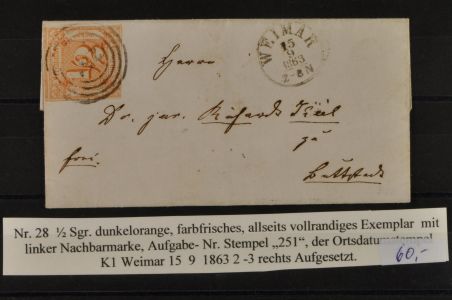 WEIMAR
15
9
1863
2-3N
Herrn
Dr. jur. Richard
zu
frei.
Buttstedt
Nr. 28 ½ Sgr. dunkelorange, farbfrisches, allseits vollrandiges Exemplar mit
linker Nachbarmarke, Aufgabe- Nr. Stempel „251“, der Ortsdatumstempel
K1 Weimar 15 9 1863 2 -3 rechts Aufgesetzt.
60,-